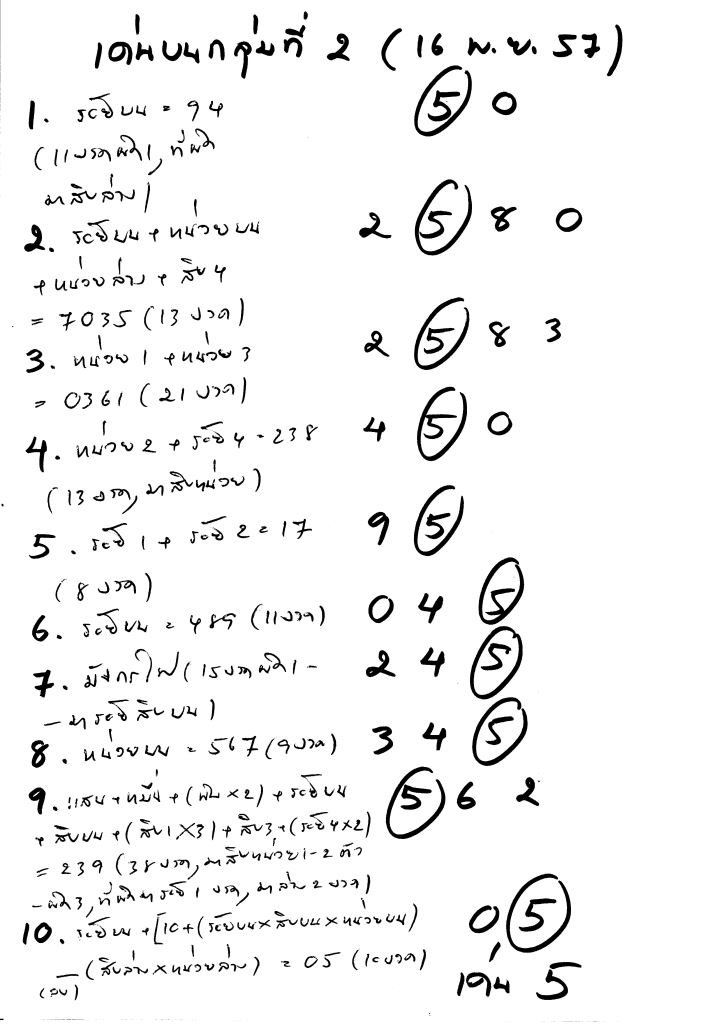 เด่นบนกลุ่มที่ 2 (16 พ.ย. 57)
1. ระยีบน = 94 ⑤ 0
(11งวดผิด1, ที่ผิด
มาสิบล่าง)
2. ระยีบน + หน่วยบน 2 ⑤ 8 0
+ หน่วยล่าง + สิบ4
= 7035 (13 งวด)
3. หน่วย 1 + หน่วย 3 2 ⑤ 8 3
= 0361 (21 งวด)
4. หน่วย 2 + ระยี 4 = 238 4 ⑤ 0
(13 งวด, มาสิบหน่วย)
5. ระยี 1 + ระยี 2 = 17 9 ⑤
(8 งวด)
6. ระยีบน = 489 (11งวด) 0 4 ⑤
7. มังกรไฟ (15งวดผิด1- 2 4 ⑤
- มาระยีสิบบน)
8. หน่วยบน = 567 (9งวด) 3 4 ⑤
9. แสน + หมื่น + (พัน × 2) + ระยีบน ⑤ 6 2
+ สิบบน + (สิบ1×3) + สิบ3 + (ระยี4×2)
= 239 (38 งวด, มาสิบหน่วย1-2 ตัว
-ผิด3, ที่ผิดมาระยี 1 งวด, มาล่าง 2 งวด)
10. ระยีบน + [10+(ระยีบน×สิบบน×หน่วยบน) 0 ⑤
— (สิบล่าง×หน่วยล่าง) = 05 (10งวด) เด่น 5
(ลบ)